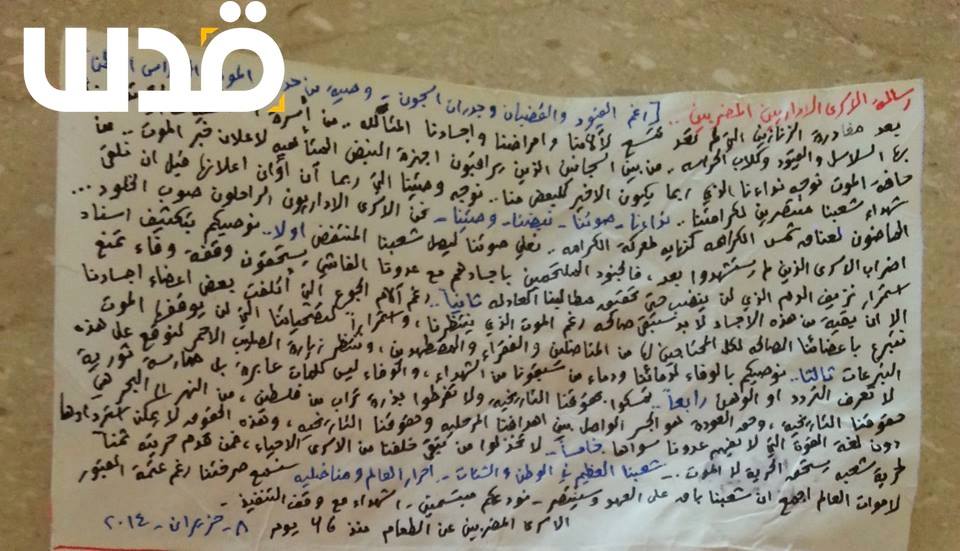 قدس
رسالة الأسرى الإداريين المضربين .. [رغم القيود والقضبان وجدران السجون - وصية من
بعد مصادرة الزنازين التي لم تعد تتسع لآلامنا وأمراضنا وأجسادنا المتآكلة .. من أسرة
بها السلاسل والقيود وكلاب الحراسة .. من بين السجانين الذين يراقبون أجهزة النبض
حافة الموت نوجه نداءنا الذي ربما يكون الأخير للبعض منا .. نوجه وصيتنا التي ربما آن أوان إعلانها قبل أن نلقى
شهداء شعبنا منتصرين لكرامتنا .. نداءنا - صوتنا - نبضنا - وصيتنا - نحن الأسرى الإداريون الراحلون صوب الخلود ...
الماضون لعناق شمس الكرامة كنهاية لمعركة الكرامة .. نعلي صوتنا ليصل شعبنا المنتفض أولاً .. نوصيكم بتكثيف إسناد
إضراب الأسرى الذين لم يستشهدوا بعد، فالجنود الملتحمين بأجسادهم مع عدونا الفاشي يستحقون وقفة وفاء تمنع
استمرار نزيف الدم الذي لن ينضب حتى تحقيق مطالبنا العادلة ثانياً .. رغم آلام الجوع التي أتلفت بعض أعضاء أجسادنا
إلا أن بقية من هذه الأجساد لا بد ستبقى صالحة رغم الموت الذي ينتظرنا، واستمراراً لتضحياتنا التي لن يوقفها الموت
نتبرع بأعضائنا الصالحة لكل المحتاجين لها من المناضلين والفقراء والمضطهدين، وننتظر زيارة الصليب الأحمر لنوقع على هذه
التبرعات ثالثاً .. نوصيكم بالوفاء لدمائنا ودماء من سبقونا من الشهداء، والوفاء ليس كلمات عابرة بل ممارسة ثورية
لا تعرف التردد أو الوهن رابعاً .. تمسكوا بحقوقنا التاريخية ولا تفرطوا بذرة تراب من فلسطين، من النهر إلى البحر هي
حقوقنا التاريخية، وحق العودة هو الجسر الواصل بين أهدافنا المرحلية وحقوقنا التاريخية، وهذه الحقوق لا يمكن استردادها
دون لغة القوة التي لا يفهم عدونا سواها خامساً .. لا تخذلوا من تبقى خلفنا من الأسرى الأحياء، فمن قدم حريته ثمناً
لحرية شعبه يستحق الحرية لا الموت .. شعبنا العظيم في الوطن والشتات - أحرار العالم ومناضليه ستسمع صرختنا رغم عتمة القبور
لأموات العالم أجمع أن شعبنا باق على العهد وسينتصر - نودعكم مبتسمين - شهداء مع وقف التنفيذ -
الأسرى المضربين عن الطعام منذ ٤٦ يوم ٨ - حزيران - ٢٠١٤